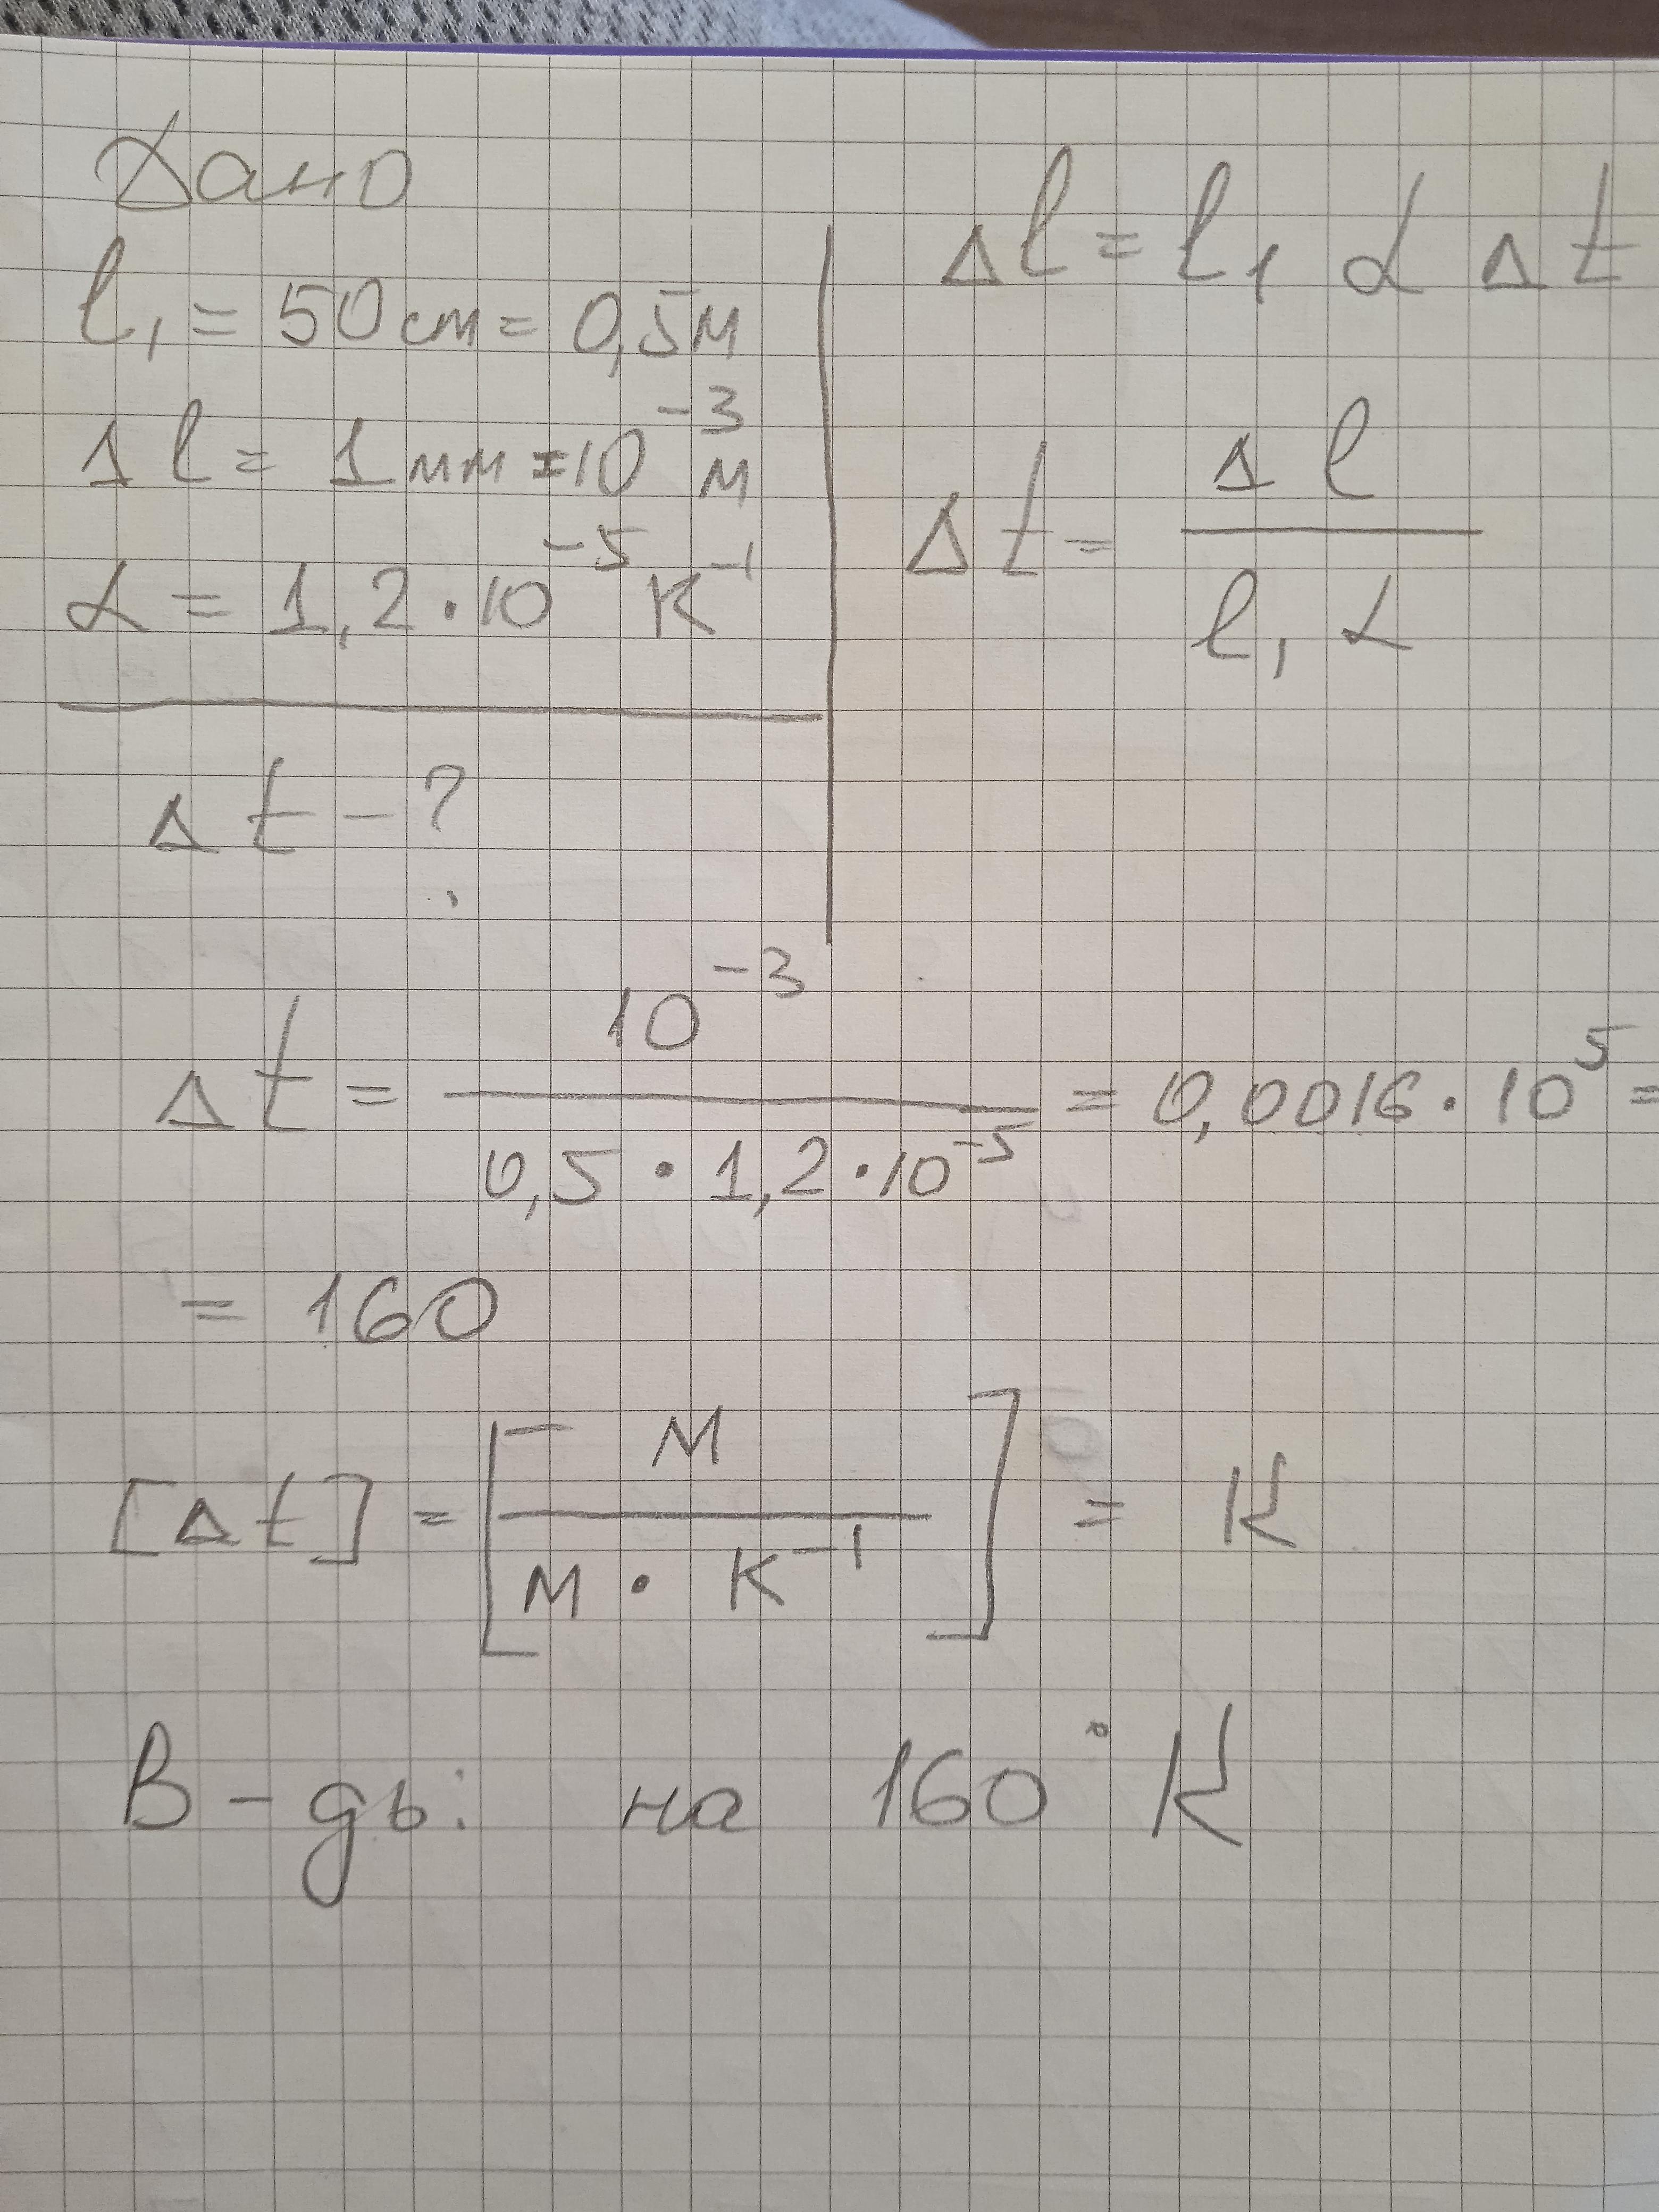 Дано
l₁ = 50 см = 0,5 м
Δl = 1 мм = 10⁻³ м
α = 1,2 · 10⁻⁵ К⁻¹
Δt - ?
Δl = l₁ α Δt
Δt = Δl / l₁ α
Δt = 10⁻³ / 0,5 · 1,2 · 10⁻⁵ = 0,0016 · 10⁵ =
= 160
[Δt] = [м / м · К⁻¹] = К
В-дь: на 160° К